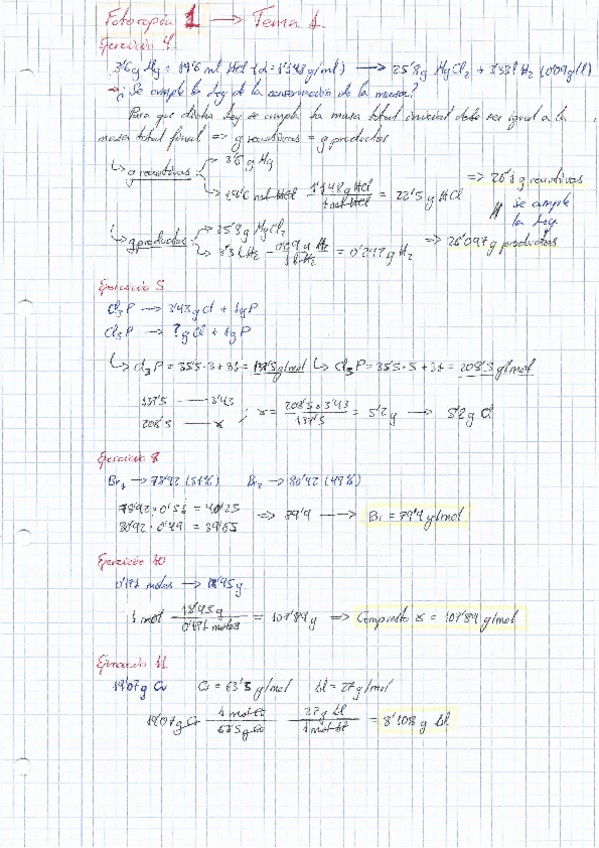 Fotocopia 1 → Tema 1.
Ejercicio 4.
3'6 g Mg + 19'6 ml HCl (d = 1'148 g/ml) → 25'8 g MgCl₂ + 3'3 l H₂ (0'09 g/l)
→ ¿Se cumple la Ley de la conservación de la masa?
Para que dicha Ley se cumpla la masa total inicial debe ser igual a la
masa total final => g reactivos = g productos
↳ g reactivos → 3'6 g Mg
→ 19'6 ml HCl · 1'148 g HCl / 1 ml HCl = 22'5 g HCl
=> 26'1 g reactivos
// se cumple
la Ley
↳ g productos → 25'8 g MgCl₂
→ 3'3 l H₂ · 0'09 g H₂ / 1 l H₂ = 0'297 g H₂
=> 26'097 g productos
Ejercicio 5
Cl₃P → 3'43 g Cl + 1 g P
Cl₅P → ? g Cl + 1 g P
↳ Cl₃P = 35'5 · 3 + 31 = 137'5 g/mol ↳ Cl₅P = 35'5 · 5 + 31 = 208'5 g/mol
137'5 — 3'43
208'5 — x ; x = 208'5 · 3'43 / 137'5 = 5'2 g → 5'2 g Cl
Ejercicio 8
Br₁ → 78'92 (51%) Br₂ → 80'92 (49%)
78'92 · 0'51 = 40'25
80'92 · 0'49 = 39'65
=> 79'9 → Br = 79'9 g/mol
Ejercicio 10
0'171 moles → 18'45 g
1 mol · 18'45 g / 0'171 moles = 107'89 g => Compuesto x = 107'89 g/mol
Ejercicio 11.
19'07 g Cu Cu = 63'5 g/mol Al = 27 g/mol
19'07 g Cu · 1 mol Cu / 63'5 g Cu · 27 g Al / 1 mol Al = 8'108 g Al